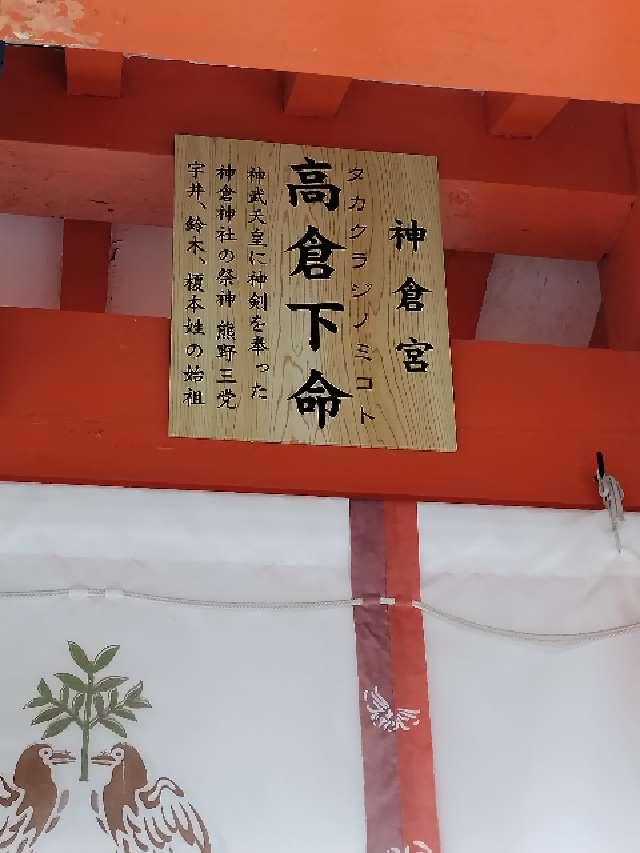 神倉宮
タカクラジノミコト
高倉下命
神武天皇に神剣を奉った
神倉神社の祭神 熊野三党
宇井、鈴木、榎本姓の始祖